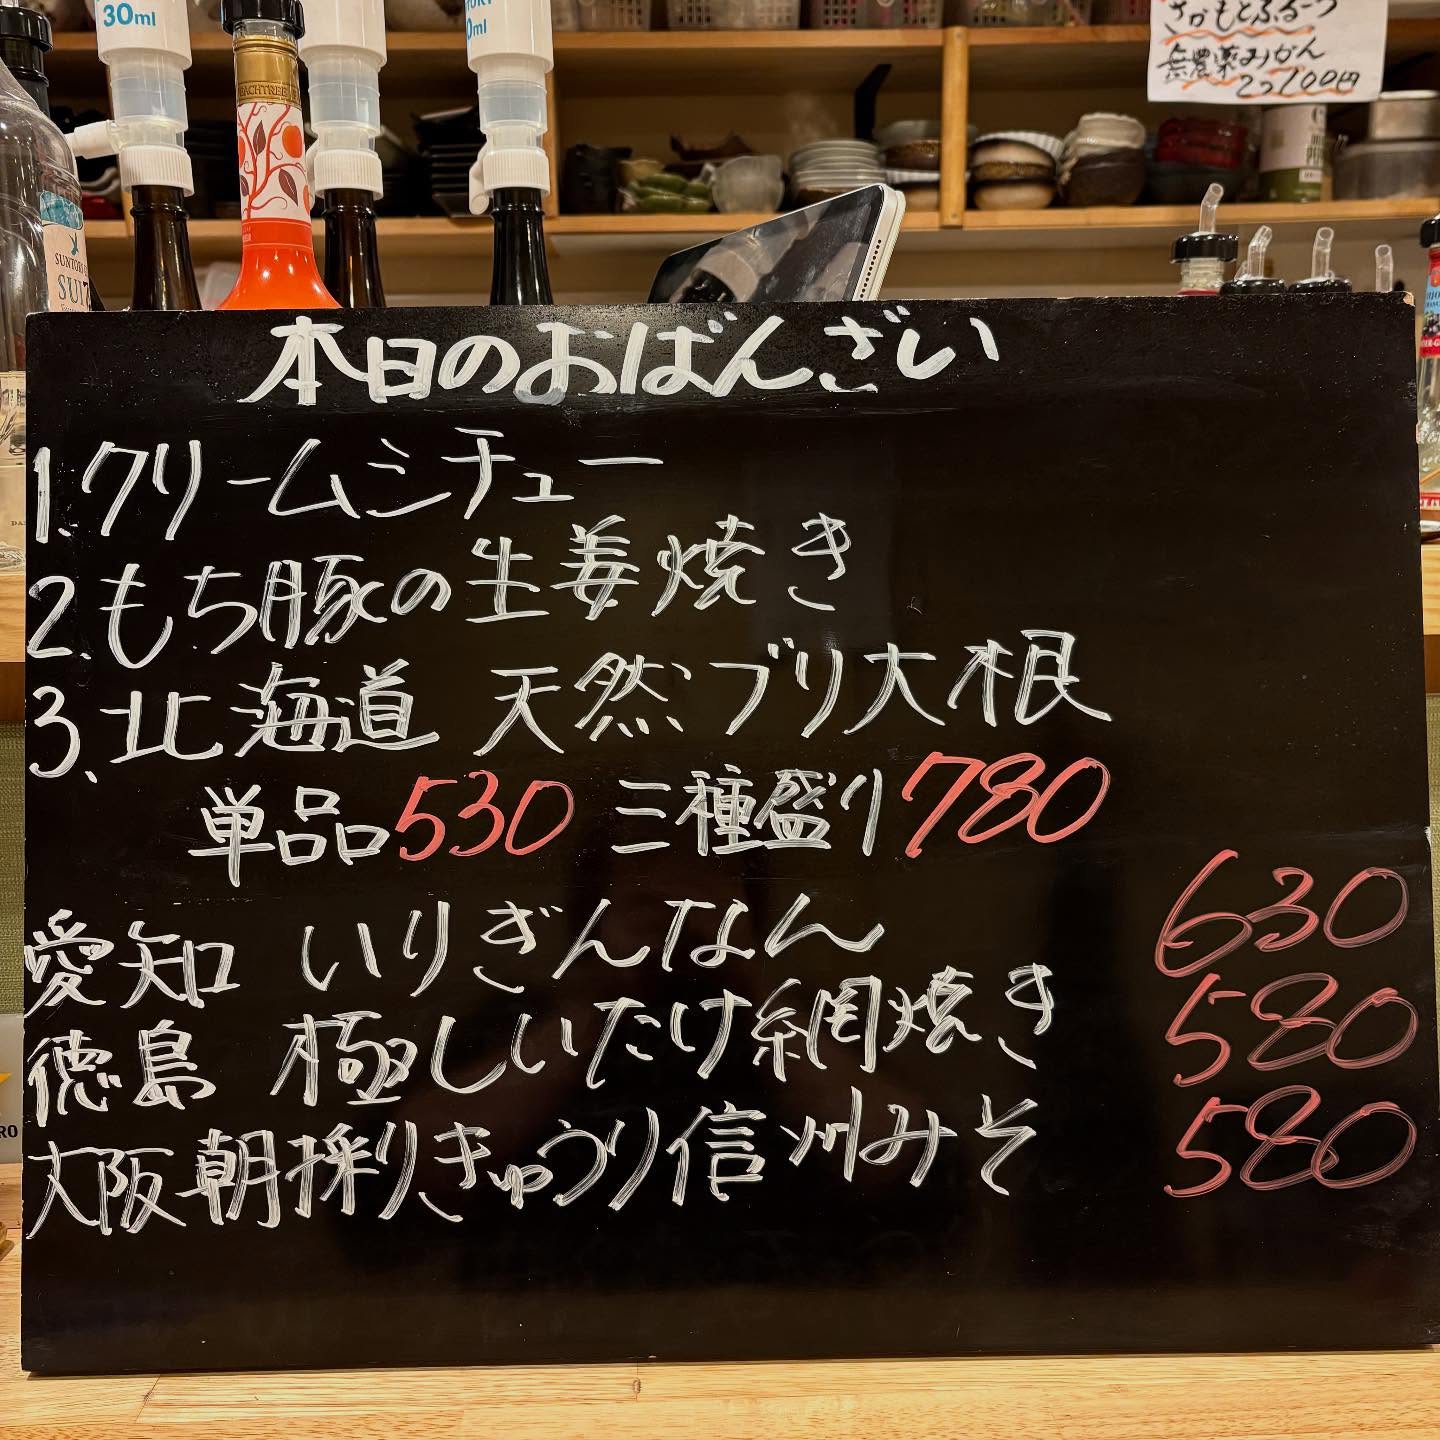 30ml
0ml
さかもとふるーつ
無農薬みかん
2コ100円
PEACHTREE
SUNTORY
SUI
本日のおばんざい
1.クリームシチュー
2.もち豚の生姜焼き
3.北海道 天然ブリ大根
単品530 三種盛り780
愛知 いりぎんなん 630
徳島 極しいたけ網焼き 580
大阪朝採りきゅうり信州みそ 580